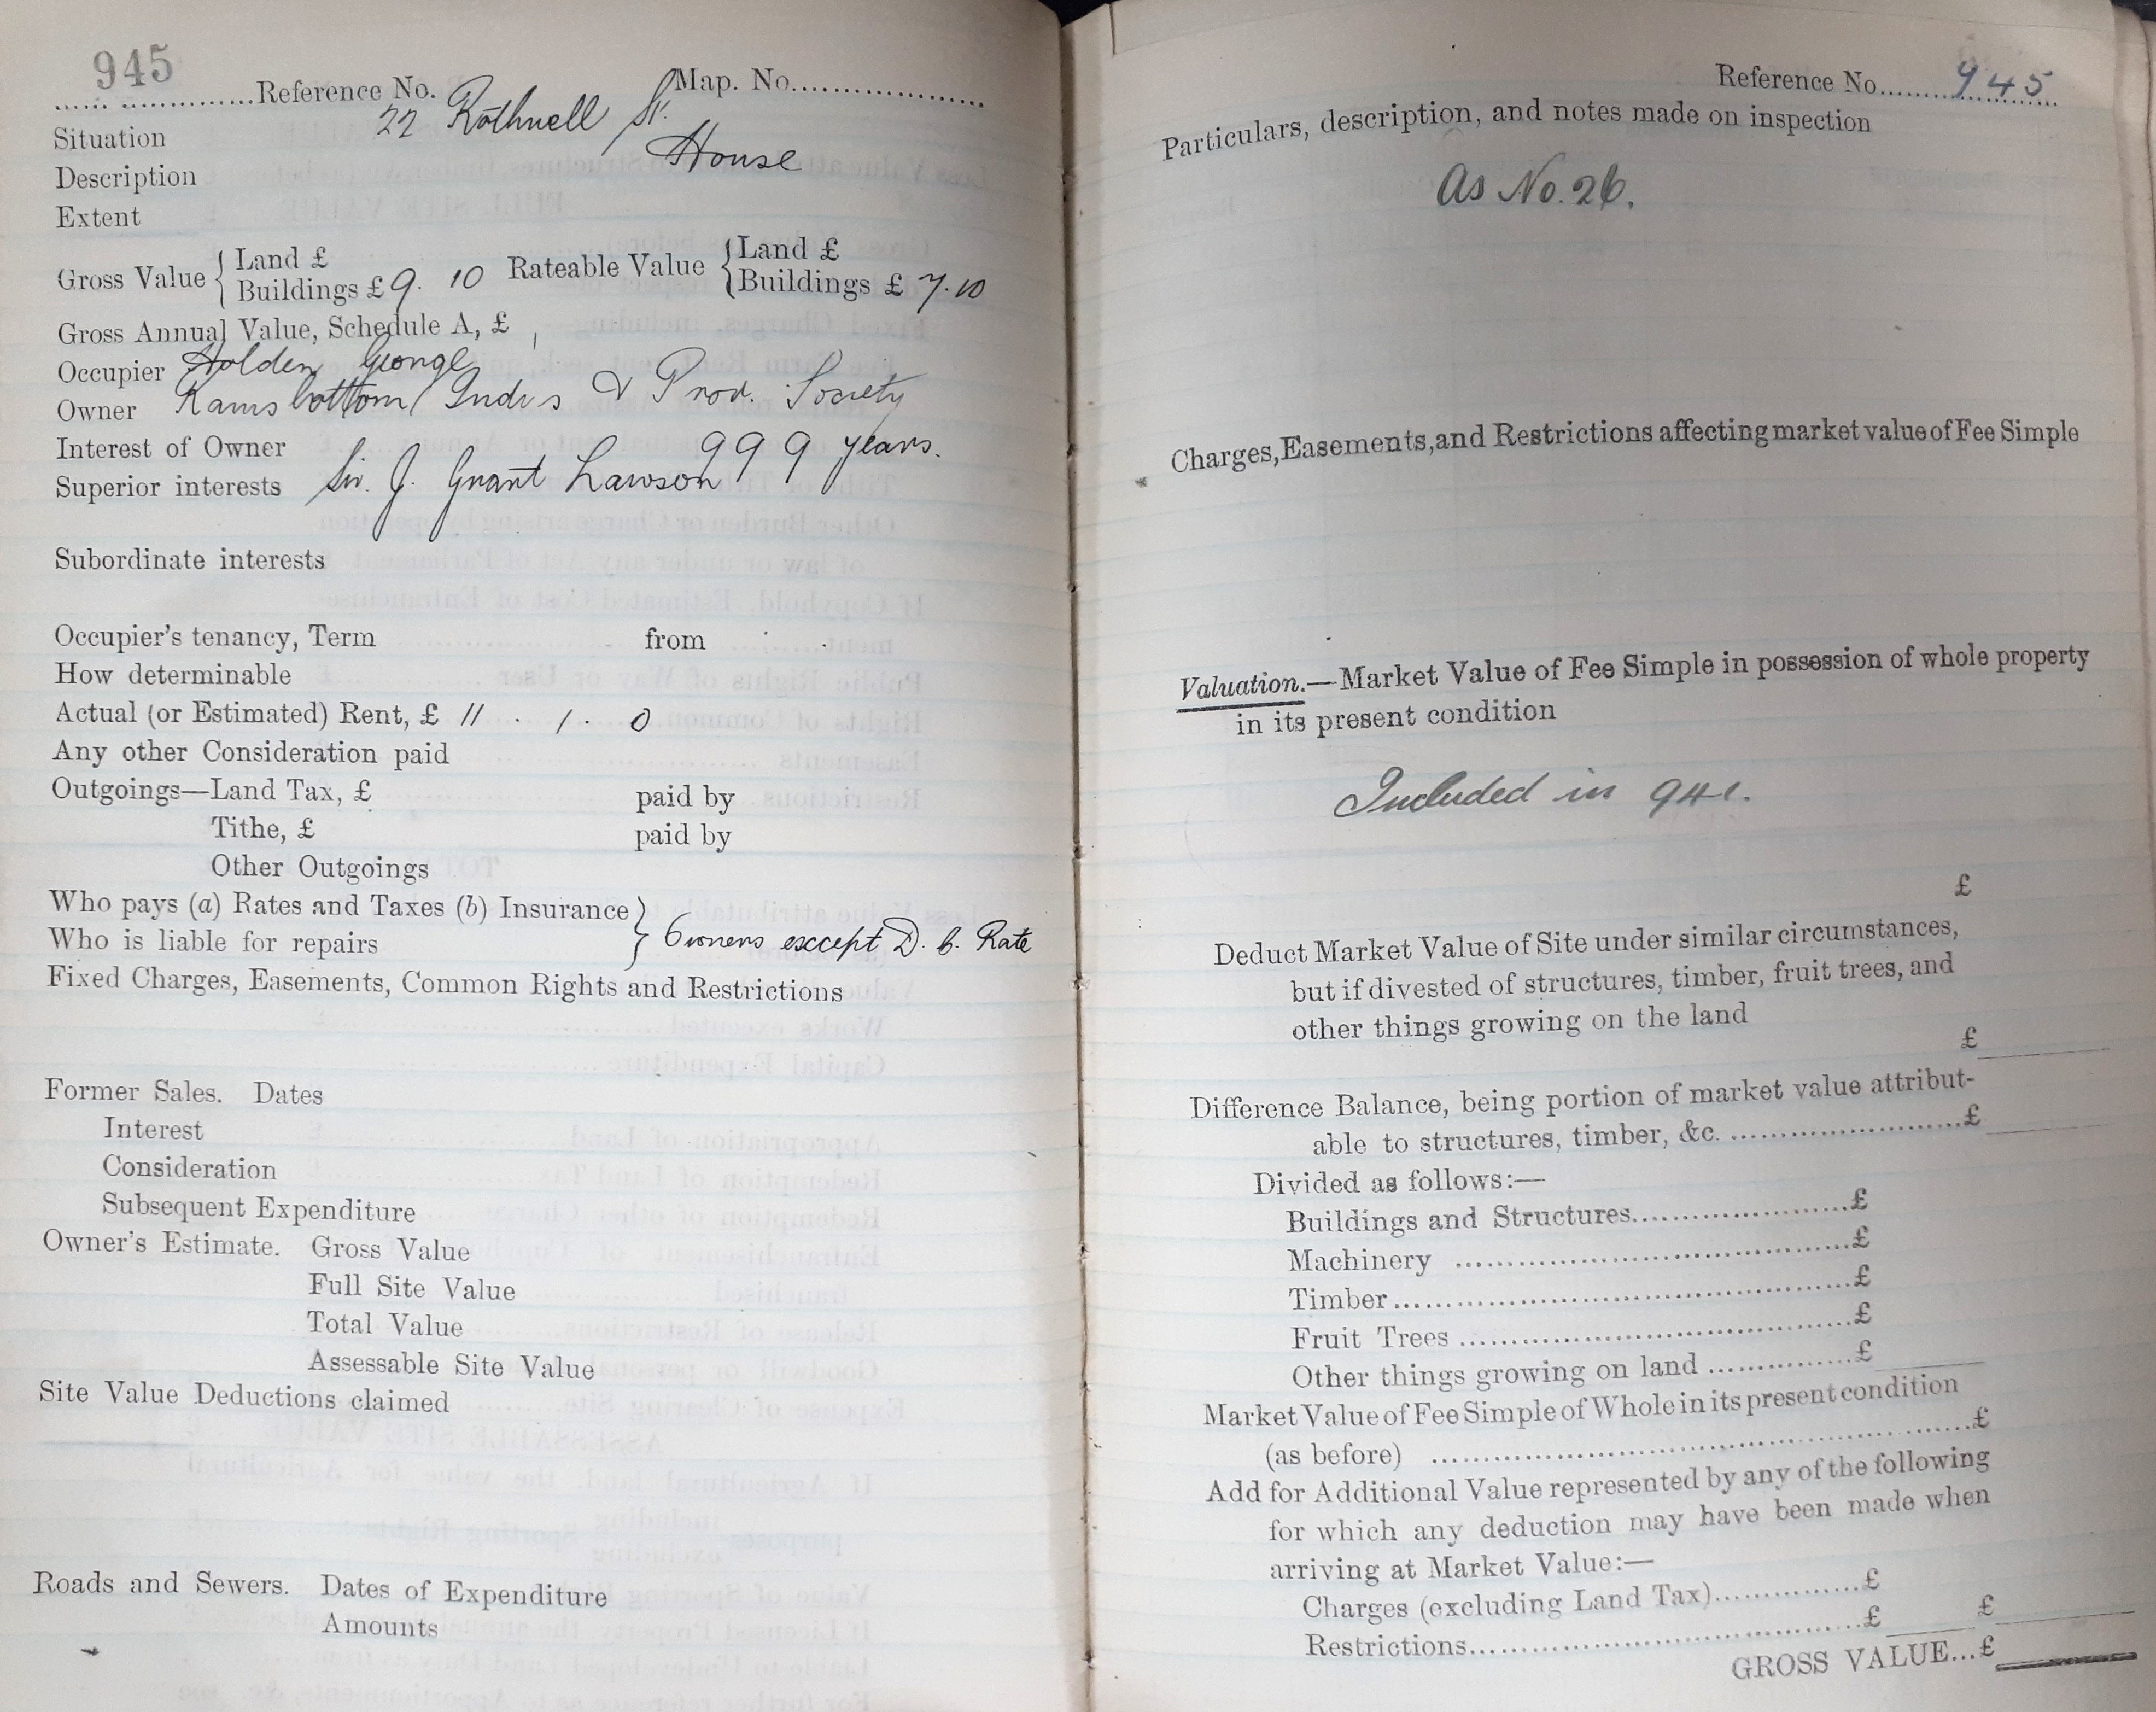 945
Reference No. Map. No.
Situation 22 Rothwell St.
Description House
Extent
Gross Value { Land £ Rateable Value { Land £
Buildings £ 9. 10 Buildings £ 7.10
Gross Annual Value, Schedule A, £
Occupier Holden George
Owner Ramsbottom Indus & Prov. Society
Interest of Owner 999 years.
Superior interests Sir. J. Grant Lawson
Subordinate interests
Occupier's tenancy, Term from
How determinable
Actual (or Estimated) Rent, £ 11 . 1 . 0
Any other Consideration paid
Outgoings—Land Tax, £ paid by
Tithe, £ paid by
Other Outgoings
Who pays (a) Rates and Taxes (b) Insurance }
Who is liable for repairs } Owners except D. C. Rate
Fixed Charges, Easements, Common Rights and Restrictions
Former Sales. Dates
Interest
Consideration
Subsequent Expenditure
Owner's Estimate. Gross Value
Full Site Value
Total Value
Assessable Site Value
Site Value Deductions claimed
Roads and Sewers. Dates of Expenditure
Amounts
Reference No. 945
Particulars, description, and notes made on inspection
As No. 26.
Charges, Easements, and Restrictions affecting market value of Fee Simple
Valuation.—Market Value of Fee Simple in possession of whole property
in its present condition
Included in 941.
£
Deduct Market Value of Site under similar circumstances,
but if divested of structures, timber, fruit trees, and
other things growing on the land
£
Difference Balance, being portion of market value attribut-
able to structures, timber, &c. £
Divided as follows:—
Buildings and Structures £
Machinery £
Timber £
Fruit Trees £
Other things growing on land £
Market Value of Fee Simple of Whole in its present condition
(as before) £
Add for Additional Value represented by any of the following
for which any deduction may have been made when
arriving at Market Value:—
Charges (excluding Land Tax) £
Restrictions £ £
GROSS VALUE... £